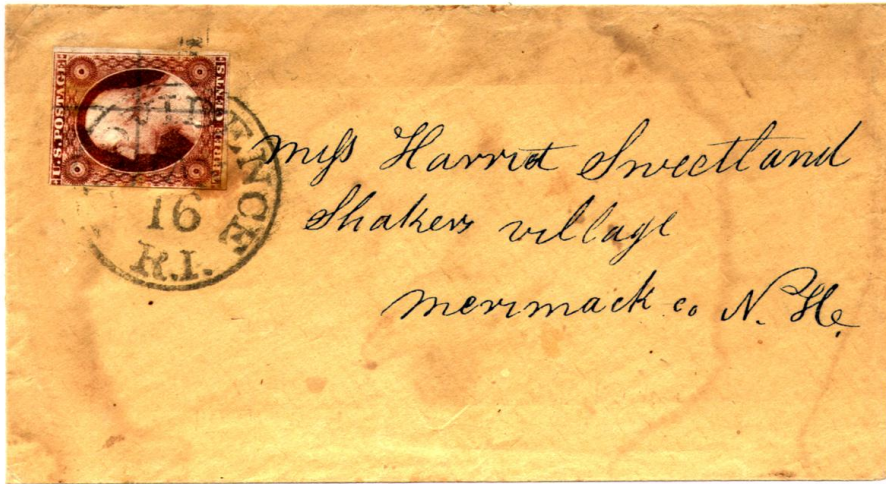 U.S. POSTAGE
THREE CENTS
PROVIDENCE
16
R.I.
Miss Harriet Sweetland
Shakers village
Merrimack co N. H.